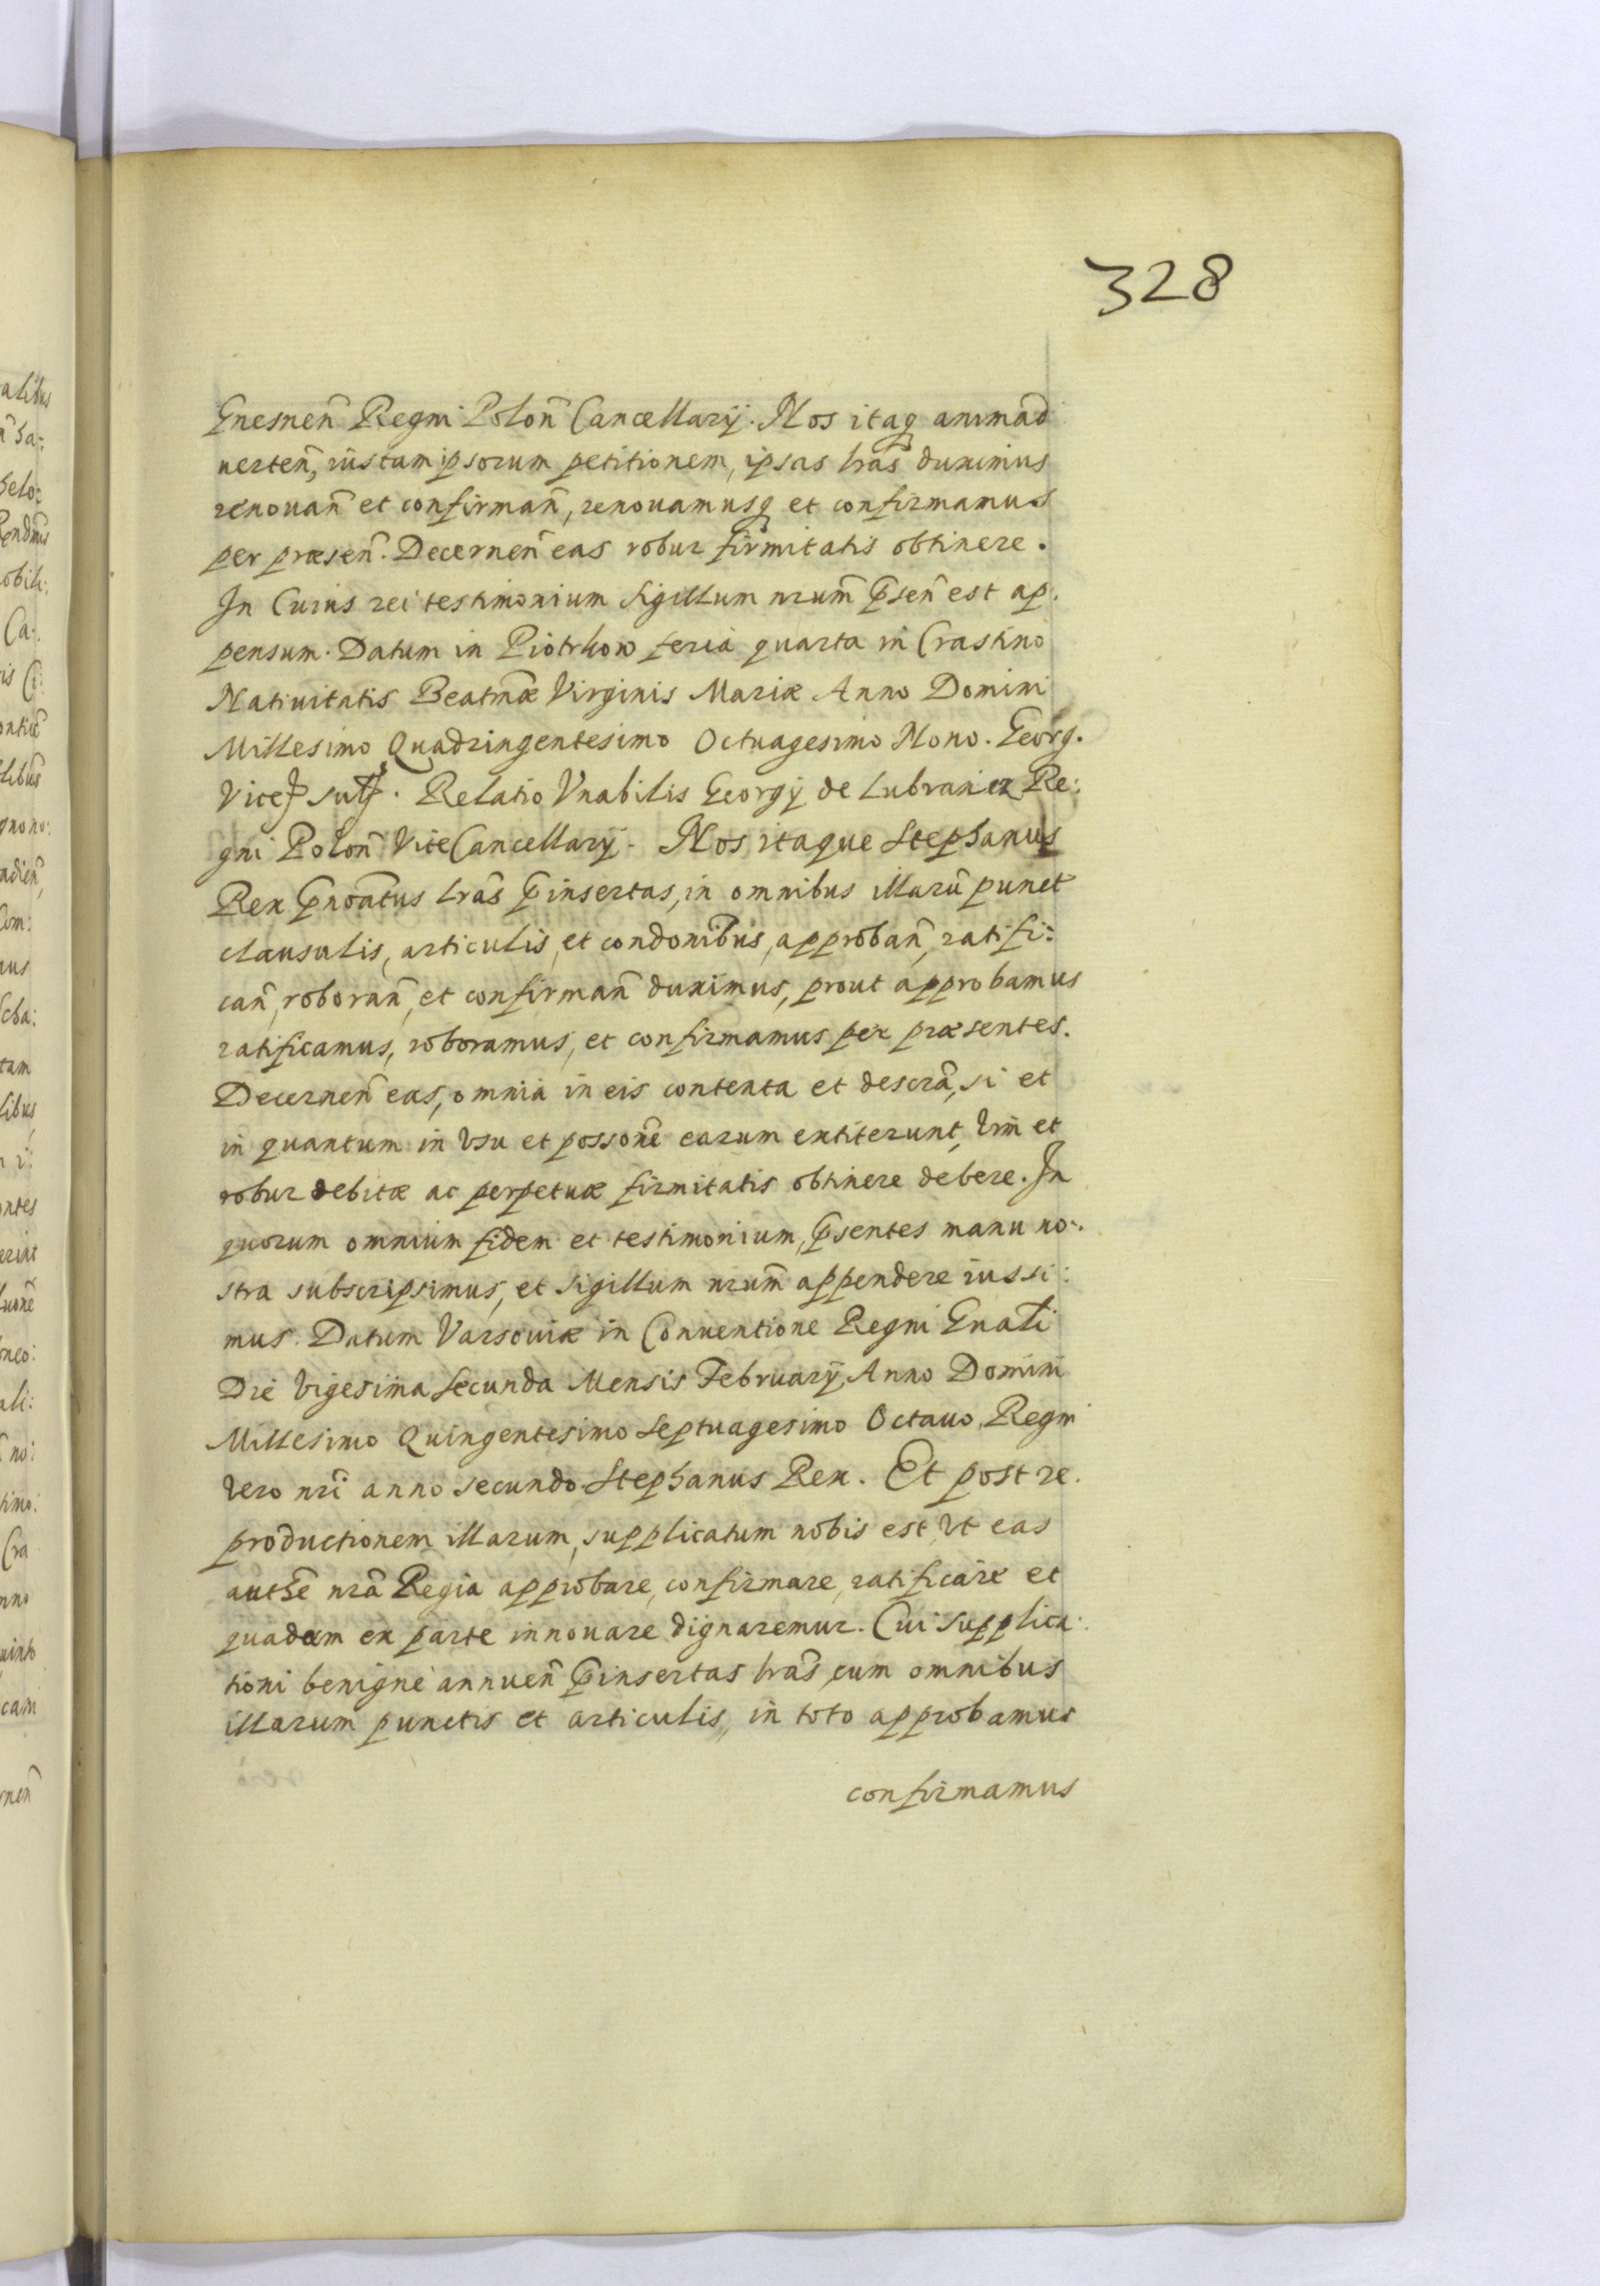 328
Gnesnen̄ Regni Polon̄ Cancellarij. Nos itaq animad
uerten̄, iustam ipsorum petitionem, ipsas lrās duximus
renouan̄ et confirman̄, renouamusq et confirmamus
per præsen̄. Decernen̄ eas robur firmitatis obtinere.
In Cuius rei testimonium Sigillum nrum̄ p̄sen̄ est ap.
pensum. Datum in Piotrkow feria quarta in Crastino
Natiuitatis Beatmæ Virginis Mariæ Anno Domini
Millesimo Quadringentesimo Octuagesimo Nono. Georg.
Vice sutt. Relatio Vnabilis Georgij de Lubraniez Re:
gni Polon̄ ViceCancellarij. Nos itaque Stephanus
Rex p̄noātus lrās p̄insertas, in omnibus illarū punct
clausulis, articulis, et condonibus, approban̄, ratifi:
can̄, roboran̄, et confirman̄ duximus, prout approbamus
ratificamus, roboramus, et confirmamus per præsentes.
Decernen̄ eas, omnia in eis contenta et descrā, si et
in quantum in Vsu et possone earum extiterunt, Vim et
robur debitæ ac perpetuæ firmitatis obtinere debere. In
quorum omnium fidem et testimonium, p̄sentes manu no:
stra subscripsimus, et Sigillum nrum̄ appendere iussi:
mus. Datum Varsouiæ in Conuentione Regni Gnali
Die Vigesima Secunda Mensis February Anno Domini
Millesimo Quingentesimo Septuagesimo Octauo, Regni
Vero nri anno secundo. Stephanus Rex. Et post re.
productionem illarum, supplicatum nobis est, Vt eas
authe nrā Regia approbare, confirmare, ratificare et
quadam ex parte innouare dignaremur. Cui supplica:
tioni benigne annuen̄ p̄insertas lrās, cum omnibus
illarum punctis et articulis, in toto approbamus
confirmamus